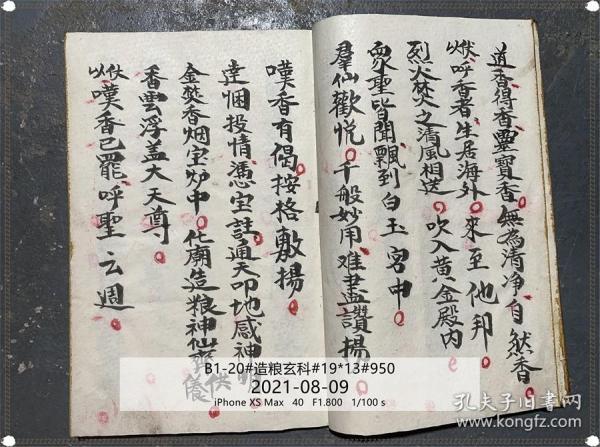 道香得香靈寶香無為清净自然香
伏以呼香者生居海外來至他邦
烈火焚之清風相送吹入黃金殿内
衆聖皆聞飄到白玉宫中
羣仙歡悦千般妙用难盡讚揚
嘆香有偈按格敷揚
達悃投情憑宝註通天叩地感神明
金焚香烟宝炉中化廟造粮神仙齊供儀
香雲浮盖大天尊
伏以嘆香已罷呼聖云週
B1-20#造粮玄科#19*13#950
2021-08-09
iPhone XS Max 40 F1.800 1/100 s
孔夫子旧書网